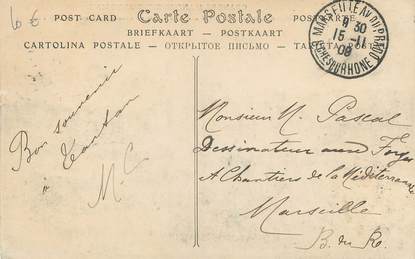 10 €
POST CARD Carte Postale POSTKARTE
BRIEFKAART — POSTKAART
CARTOLINA POSTALE — ОТКРЫТОЕ ПИСЬМО — TARJETA PO
8 30
15 -11
08
Bon souvenir
à
M. C
Monsieur M. Pascal
Dessinateur aux Forges
& Chantiers de la Méditerranée
Marseille
B. du R.